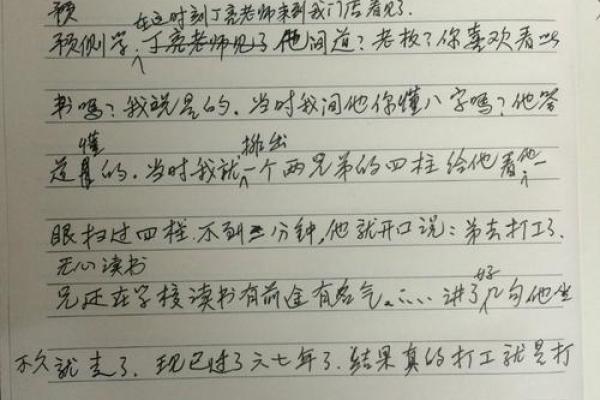 预 在这时刻丁亮老师来到我门店看见了
预侧学,丁亮老师见了他问道?老板?你喜欢看此
书吗?我说是的.当时我问他你懂八字吗?他答
道懂的.当时我就排出一个两兄弟的四柱给他看他一
眼扫过四柱.不到一分钟,他就开口说:弟去打工了.
无心读书
兄还在学校读书有前途有名气。…..讲了好几句他坐
不久就走了.现已过了六七年了.结果真的打工就是打